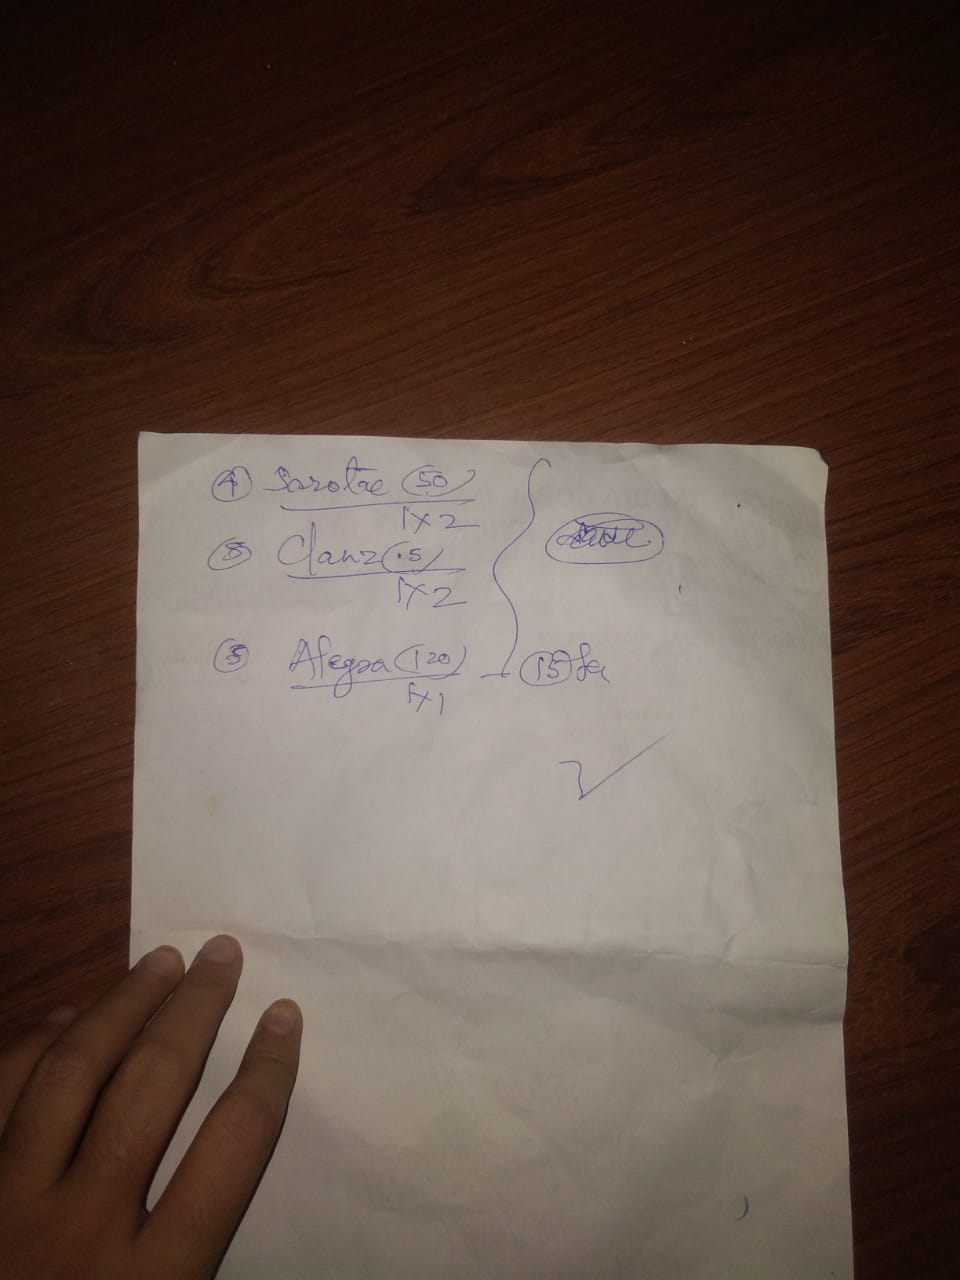 ④ Sarotae (50)
1×2
⑤ Clanz (.5)
1×2
⑤ Alegra (120) — (15)
1×1